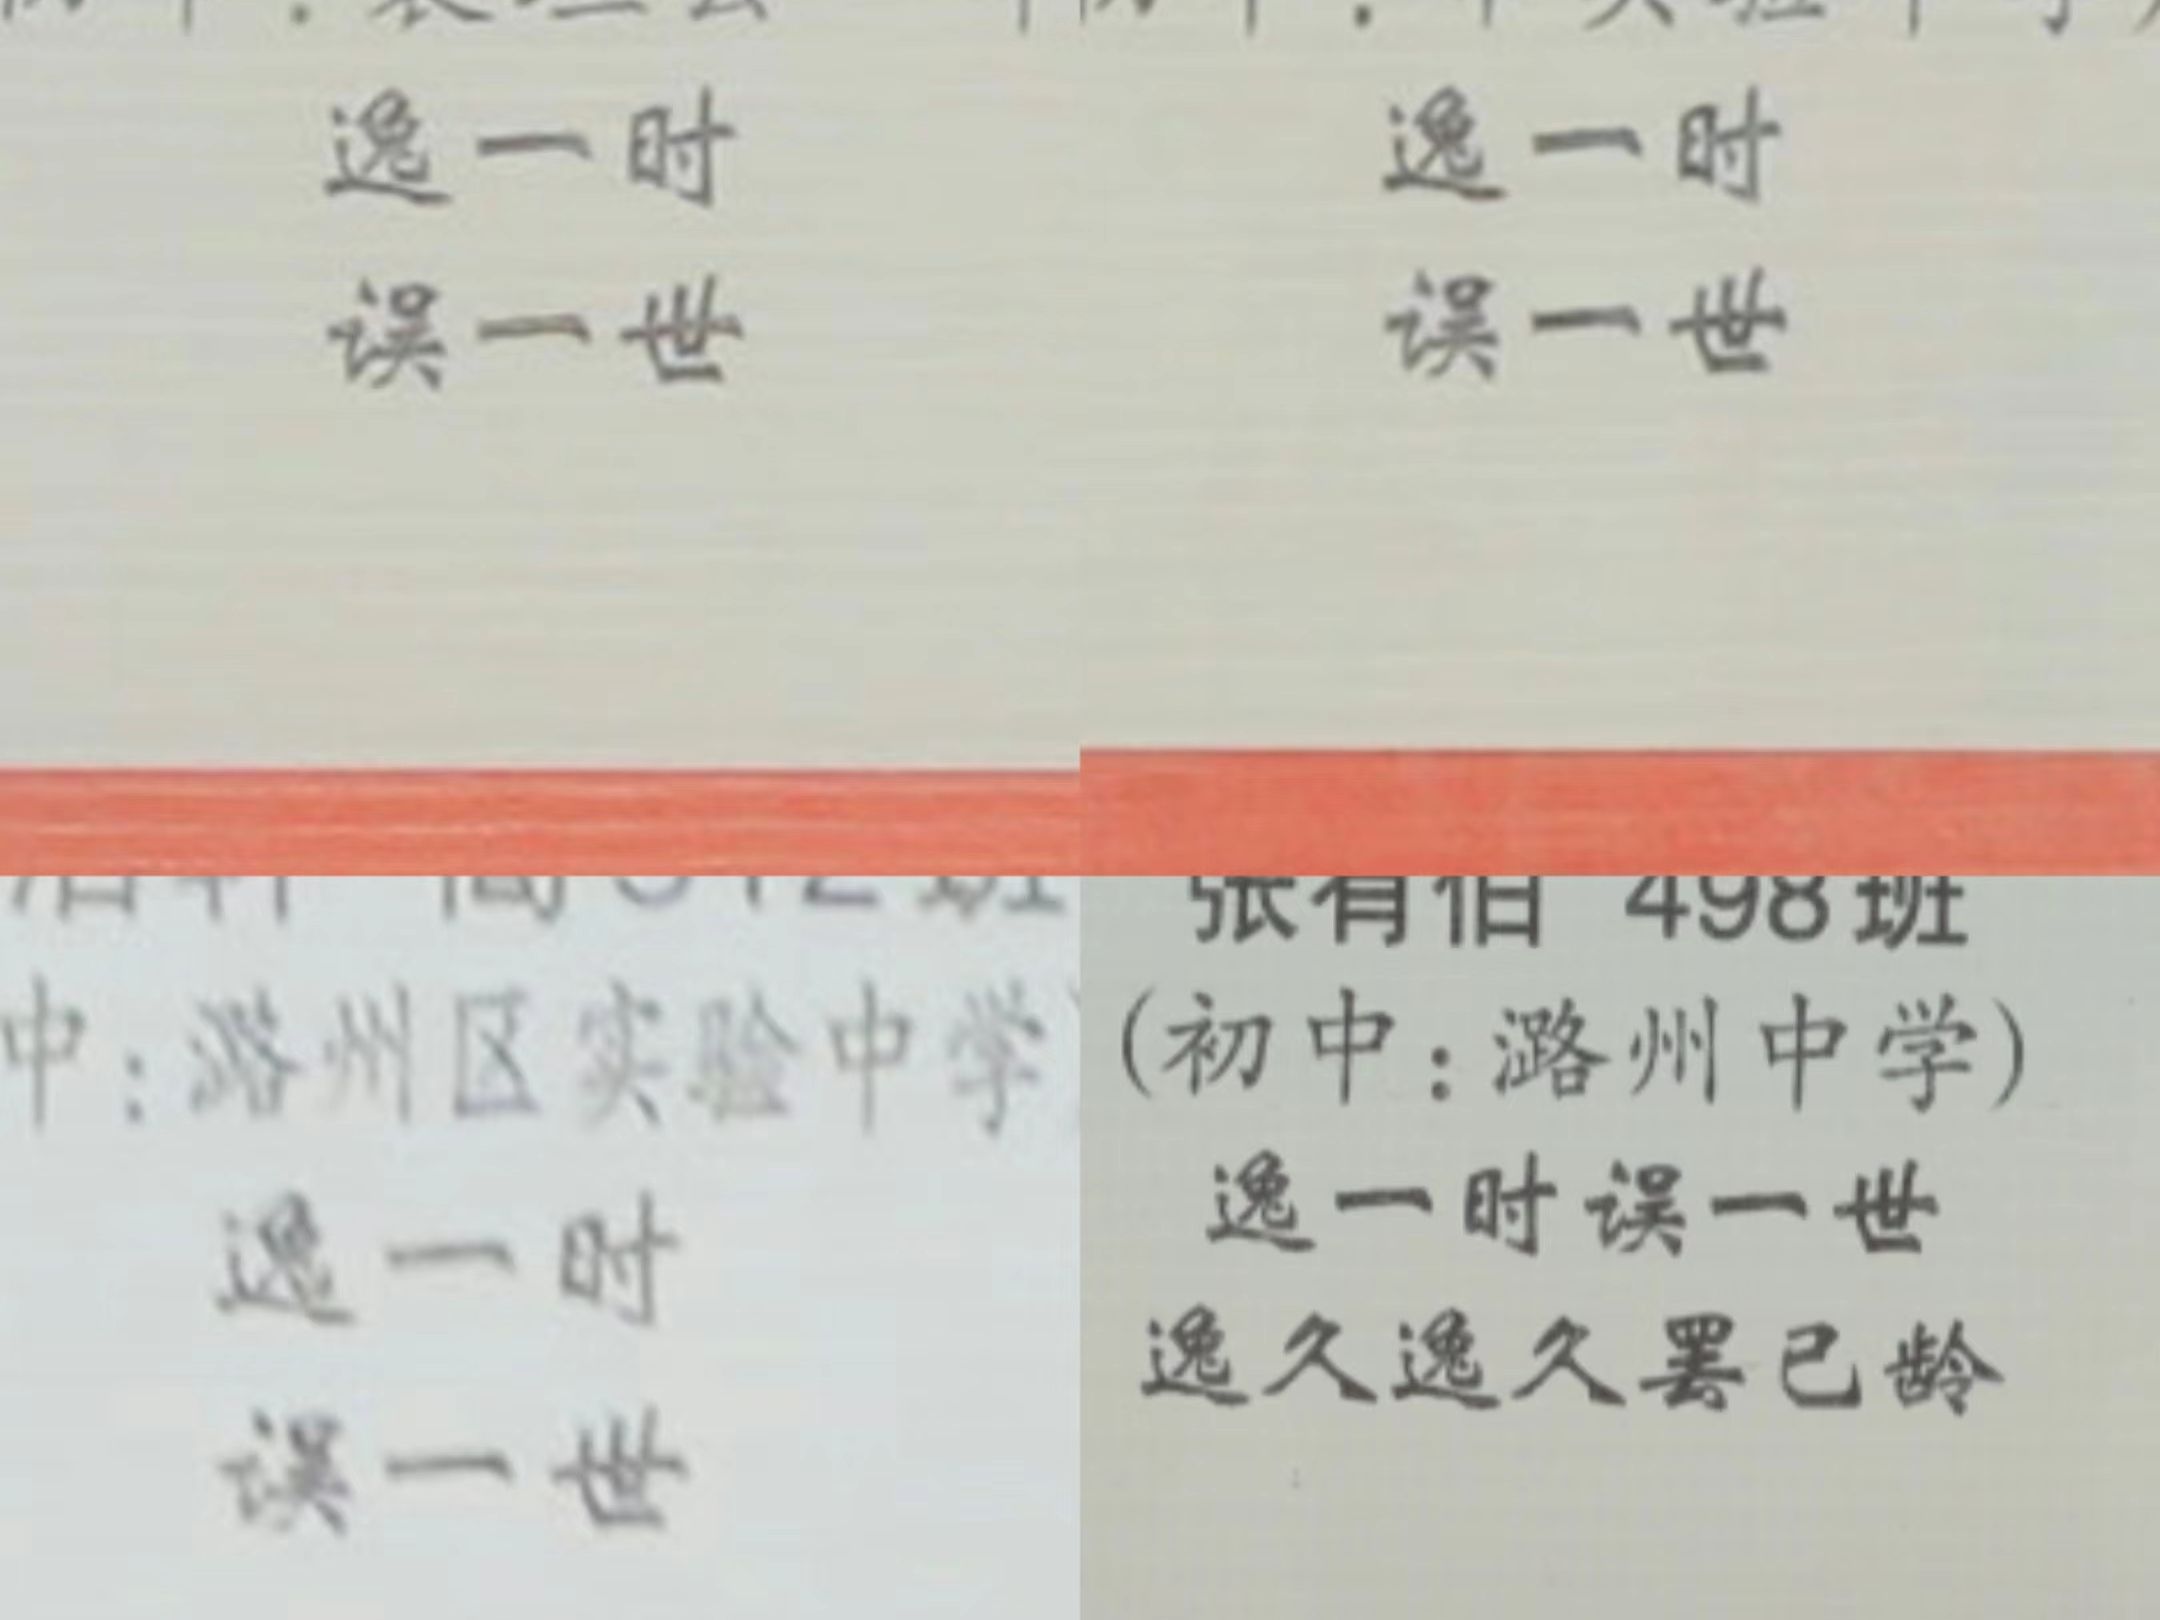 逸一时
误一世
逸一时
误一世
中：潞州区实验中学
逸一时
误一世
张有伯 498班
（初中：潞州中学）
逸一时误一世
逸久逸久罢已龄